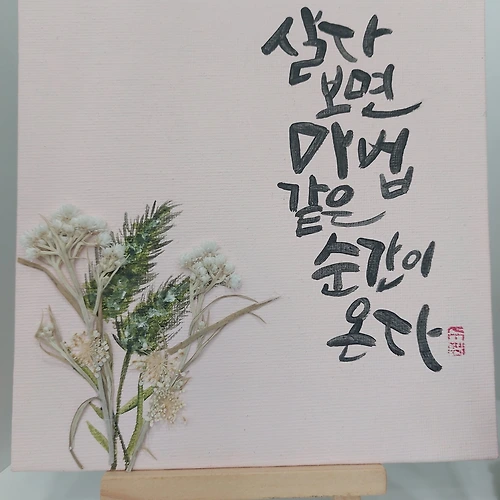 살다
보면
마법
같은
순간이
온다